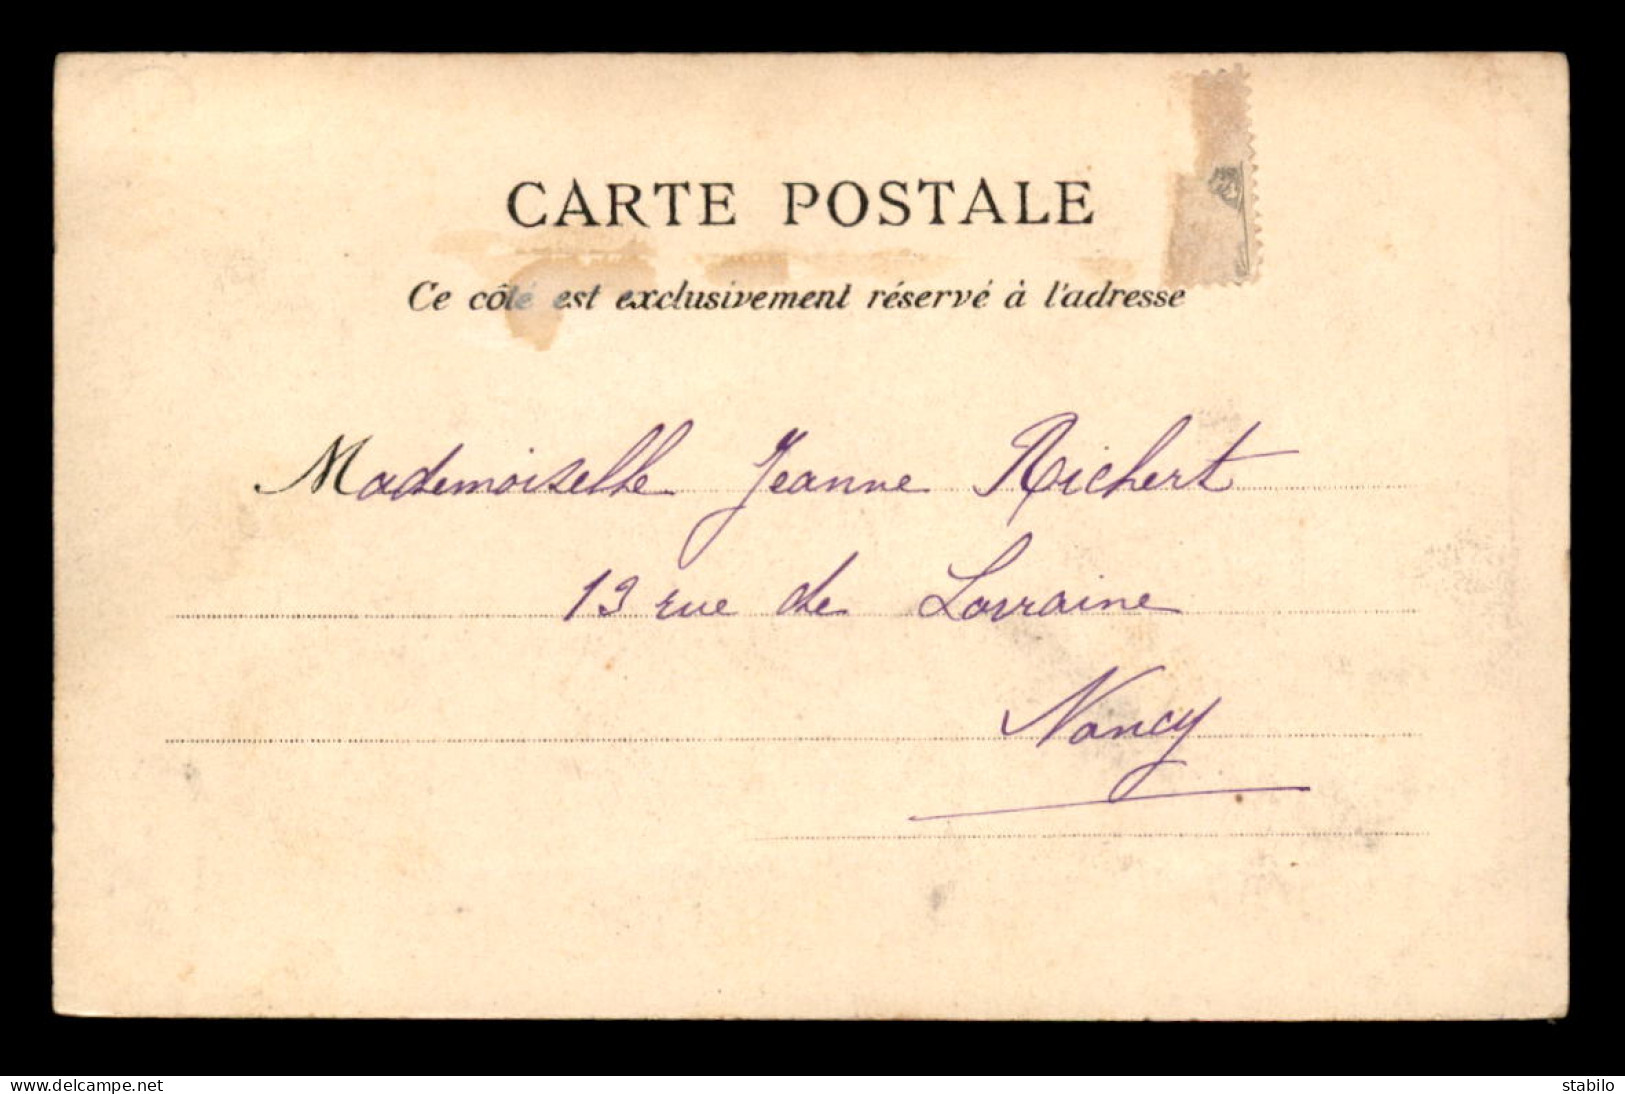 CARTE POSTALE
Ce côté est exclusivement réservé à l'adresse
Mademoiselle Jeanne Richert
13 rue de Lorraine
Nancy
www.delcampe.net
stabilo